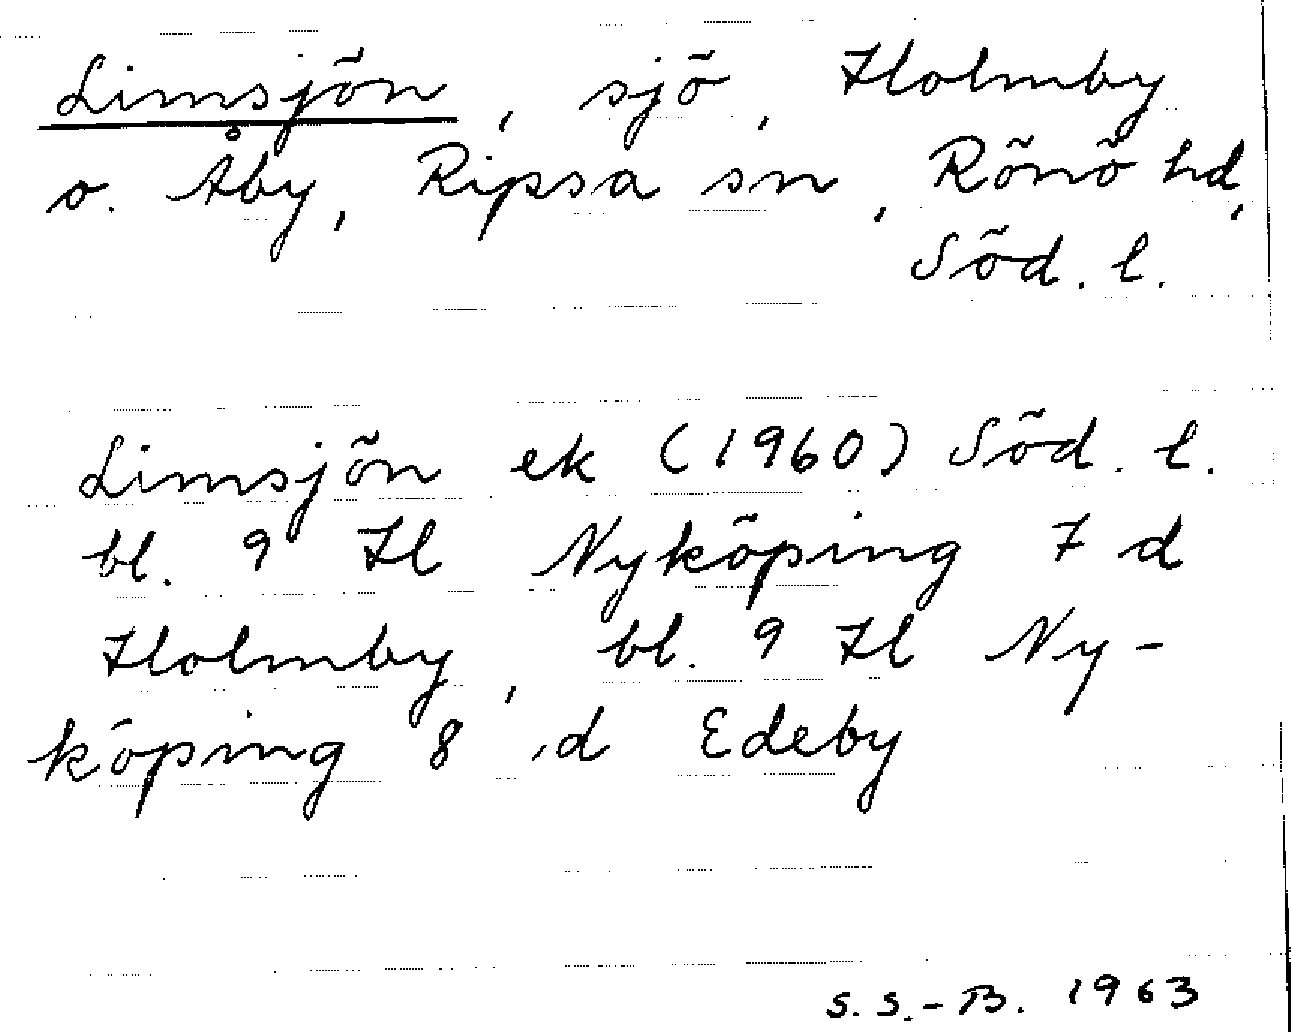 Limsjön, sjö, Holmby
o. Åby, Ripsa sn, Rönö hd,
Söd. l.
Limsjön ek (1960) Söd. l.
bl. 9 H Nyköping 7 d
Holmby, bl. 9 H Ny-
köping 8 d Edeby
S. S.-B. 1963